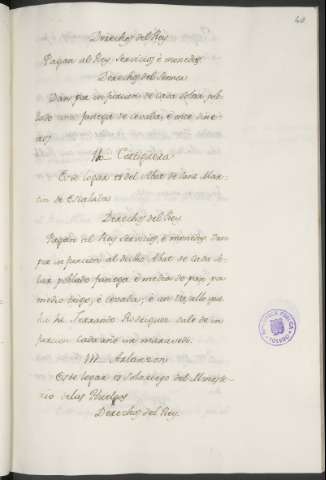 40
Derechos del Rey
Pagan al Rey servicios, é monedas
Derechos del Señor
Dan por infurcion de cada solar po-
blado una fanega de cevada, é once dine-
ros
Cortiguera
Este logar es del Abat de Sant Mar-
tin de Escalada
Derechos del Rey
Pagan al Rey servicios, é monedas. Dan
por infurcion al dicho Abat de cada so-
lar poblado fanega é media de pan, pa
medio trigo, é cevada, é un
ha Ferrando Rodriguez dale de in
furcion cada año un maravedi.
Arlanzon
Este logar es solariego del Moneste-
rio de las Huelgas
Derechos del Rey.
BIBLIOTECA PUBLICA
TOLEDO